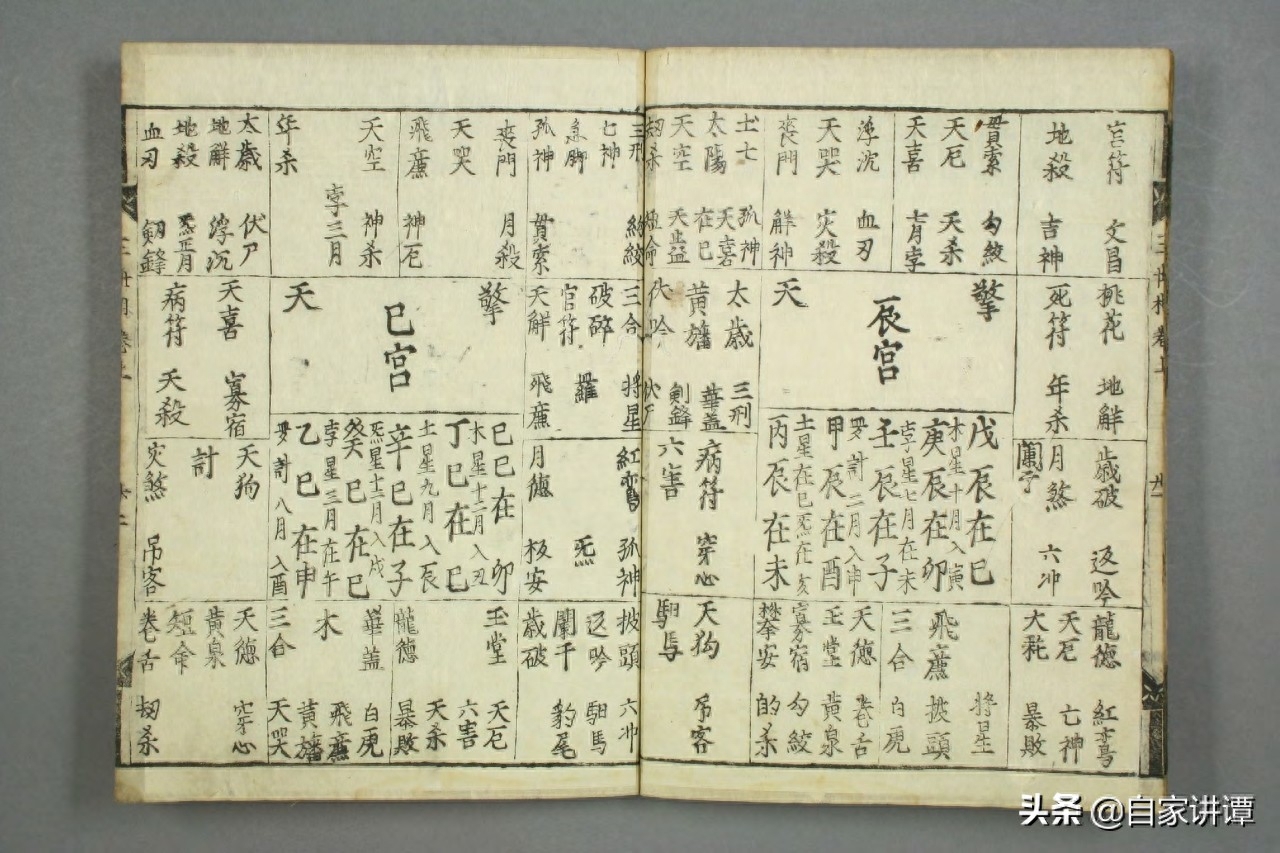 官符 文昌
地殺 吉神
貫索 勾絞
天厄 天杀
天喜 七月孛
浮沉 血刃
天哭 灾殺
喪門 解神
孤神
太陽 天喜 在巳
天空 天益
劒杀 短命
桃花 地解
死符 年杀
擎 天
辰宮
太歲 三刑
黃旛 華盖 劍鋒
伏吟 伏尸
歲破 返吟
月煞 六冲
闌干
戊辰在巳
木星十月入寅
庚辰在卯
孛星七月在未
壬辰在子
甲辰在酉
罗計二月入申
土星在巳炁在亥
丙辰在未
病符 穿心
六害
龍德 紅鸞
天厄 亡神
大耗 暴敗
將星
飛廉 披頭
三合 白虎
天德 卷舌
玉堂 黃泉
寡宿 勾絞
攀安 的杀
天狗 吊客
馹馬
三世相卷上
三刑 勾絞
亡神
急脚
孤神 貫索
喪門 月殺
天哭
飛廉 神厄
天空 神杀
孛三月
年杀
太歲 伏尸
地解 浮沉
地殺 炁正月
血刃 劒鋒
三合 將星
破碎
官符 羅
天解 飛廉
擎 天
巳宮
天喜 寡宿
病符 天殺
紅鸞 孤神
炁
月德 板安
己巳在卯
木星十二月入丑
丁巳在巳
土星九月入辰
辛巳在子
炁星十二月入戌
癸巳在巳
孛星三月在午
乙巳在申
罗計八月入酉
天狗
計
灾煞 吊客
披頭 六冲
返吟 馹馬
闌干 豹尾
歲破
玉堂 天厄
六害
天杀
龍德 暴敗
華盖 白虎
木 飛廉
黃旛
三合 天哭
天德 穿心
黃泉
短命
卷舌 劫杀
头条 @自家讲谭